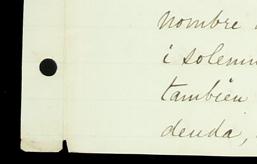 nombre
i solem
también
deuda,